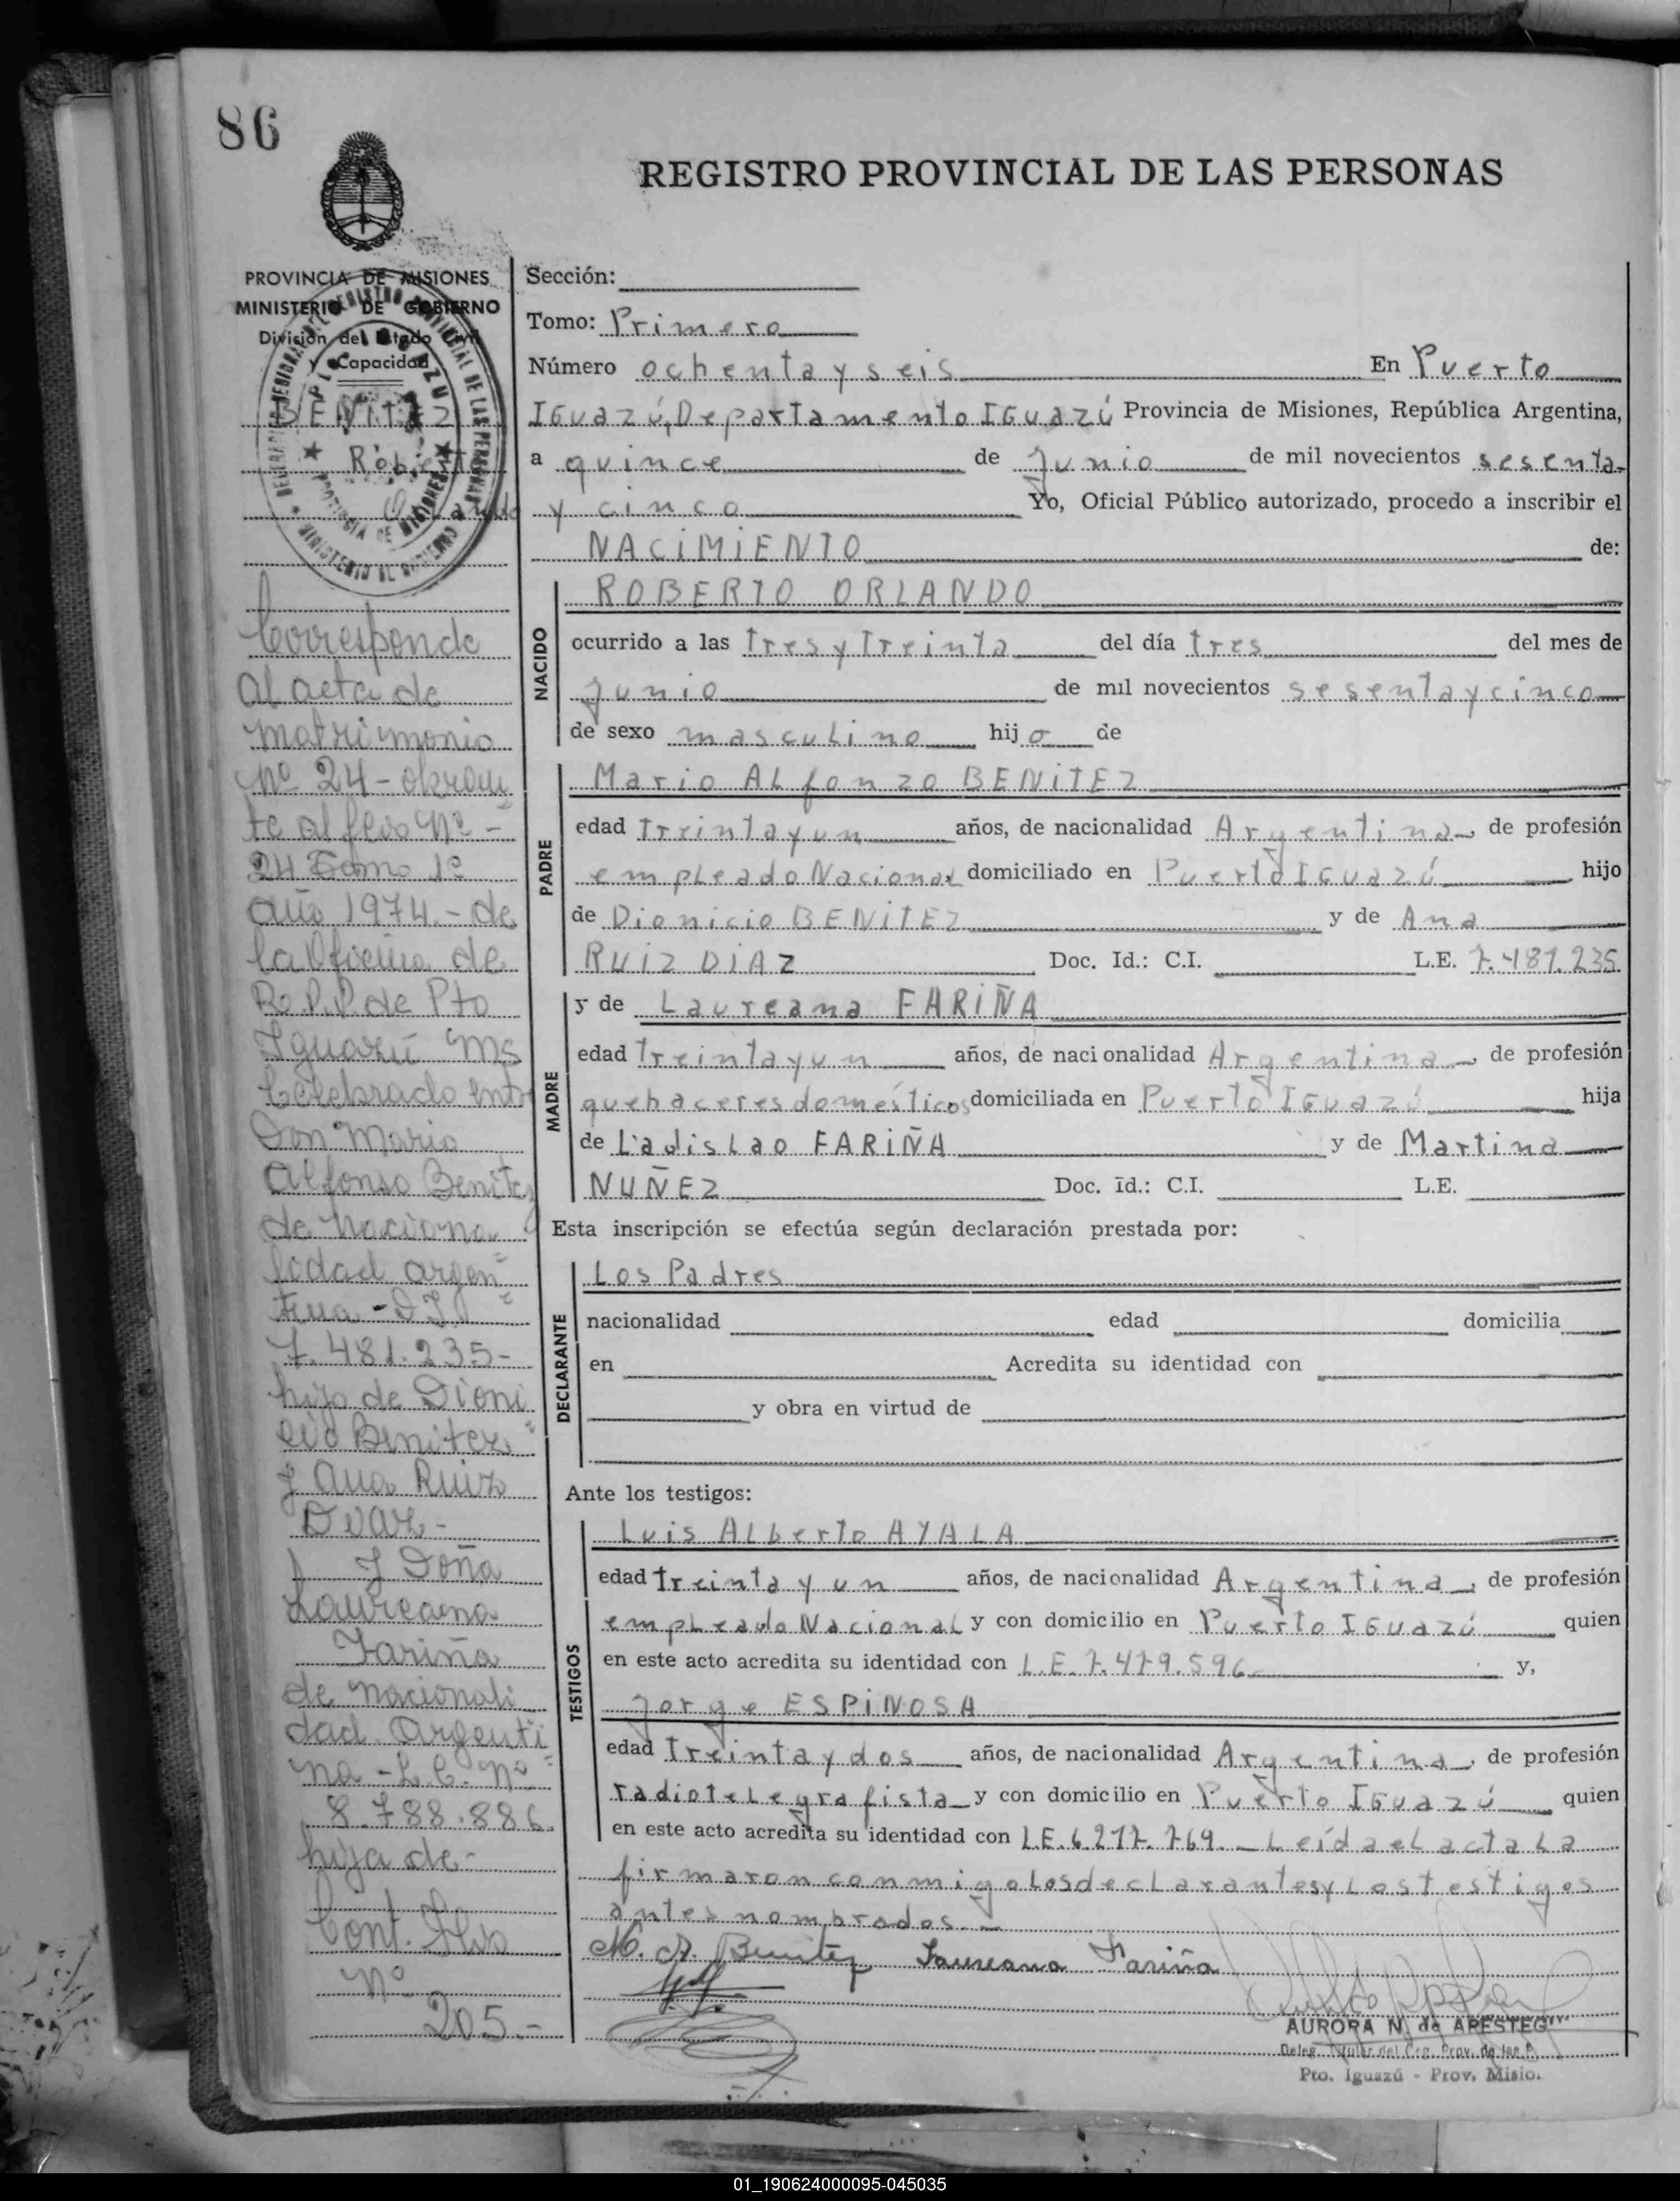 86
REGISTRO PROVINCIAL DE LAS PERSONAS
PROVINCIA DE MISIONES
MINISTERIO DE GOBIERNO
División del Estado Civil
y Capacidad
BENITEZ
Roberto
Orlando
Corresponde
al acta de
matrimonio
Nº 24 - obran
te al folio Nº -
24 Tomo 1º
año 1974.- de
la Oficina de
R.P.P. de Pto
Iguazú Ms
Celebrado entre
Don Mario
Alfonso Benitez
de naciona
lidad argen
tina - DJI
7.481.235-
hijo de Dioni
cio Benitez
y Ana Ruiz
Diaz -
y Doña
Laureana
Fariña
de nacionali
dad Argenti
na - L.C. nº
8.788.886
hija de-
Cont. flio
Nº
205.-
Sección:
Tomo: Primero
Número ochenta y seis En Puerto
IGuazú, Departamento IGuazú Provincia de Misiones, República Argentina,
a quince de Junio de mil novecientos sesenta
y cinco Yo, Oficial Público autorizado, procedo a inscribir el
NACIMIENTO de:
NACIDO
ROBERTO ORLANDO
ocurrido a las tres y treinta del día tres del mes de
Junio de mil novecientos sesenta y cinco
de sexo masculino hijo de
PADRE
Mario ALfonzo BENITEZ
edad treinta y un años, de nacionalidad Argentina, de profesión
empleado Nacional domiciliado en Puerto IGuazú hijo
de Dionicio BENITEZ y de Ana
RUIZ DIAZ Doc. Id.: C.I. L.E. 7.481.235
MADRE
y de Laureana FARIÑA
edad treinta y un años, de nacionalidad Argentina, de profesión
quehaceres domésticos domiciliada en Puerto IGuazú hija
de Ladislao FARIÑA y de Martina
NUÑEZ Doc. Id.: C.I. L.E.
Esta inscripción se efectúa según declaración prestada por:
DECLARANTE
Los Padres
nacionalidad edad domicilia
en Acredita su identidad con
y obra en virtud de
Ante los testigos:
TESTIGOS
Luis ALberto AYALA
edad treinta y un años, de nacionalidad Argentina, de profesión
empleado Nacional y con domicilio en Puerto IGuazú quien
en este acto acredita su identidad con L.E. 7.479.596 y,
Jorge ESPINOSA
edad treinta y dos años, de nacionalidad Argentina, de profesión
radiotelegrafista y con domicilio en Puerto IGuazú quien
en este acto acredita su identidad con L.E. 6.217.769. - Leída el acta la
firmaron conmigo los declarantes y los testigos
antes nombrados. -
M. A. Benitez Laureana Fariña
AURORA N. de ARESTEGUI
Deleg. Titular del Reg. Prov. de las P.
Pto. Iguazú - Prov. Misio.
01_190624000095-045035